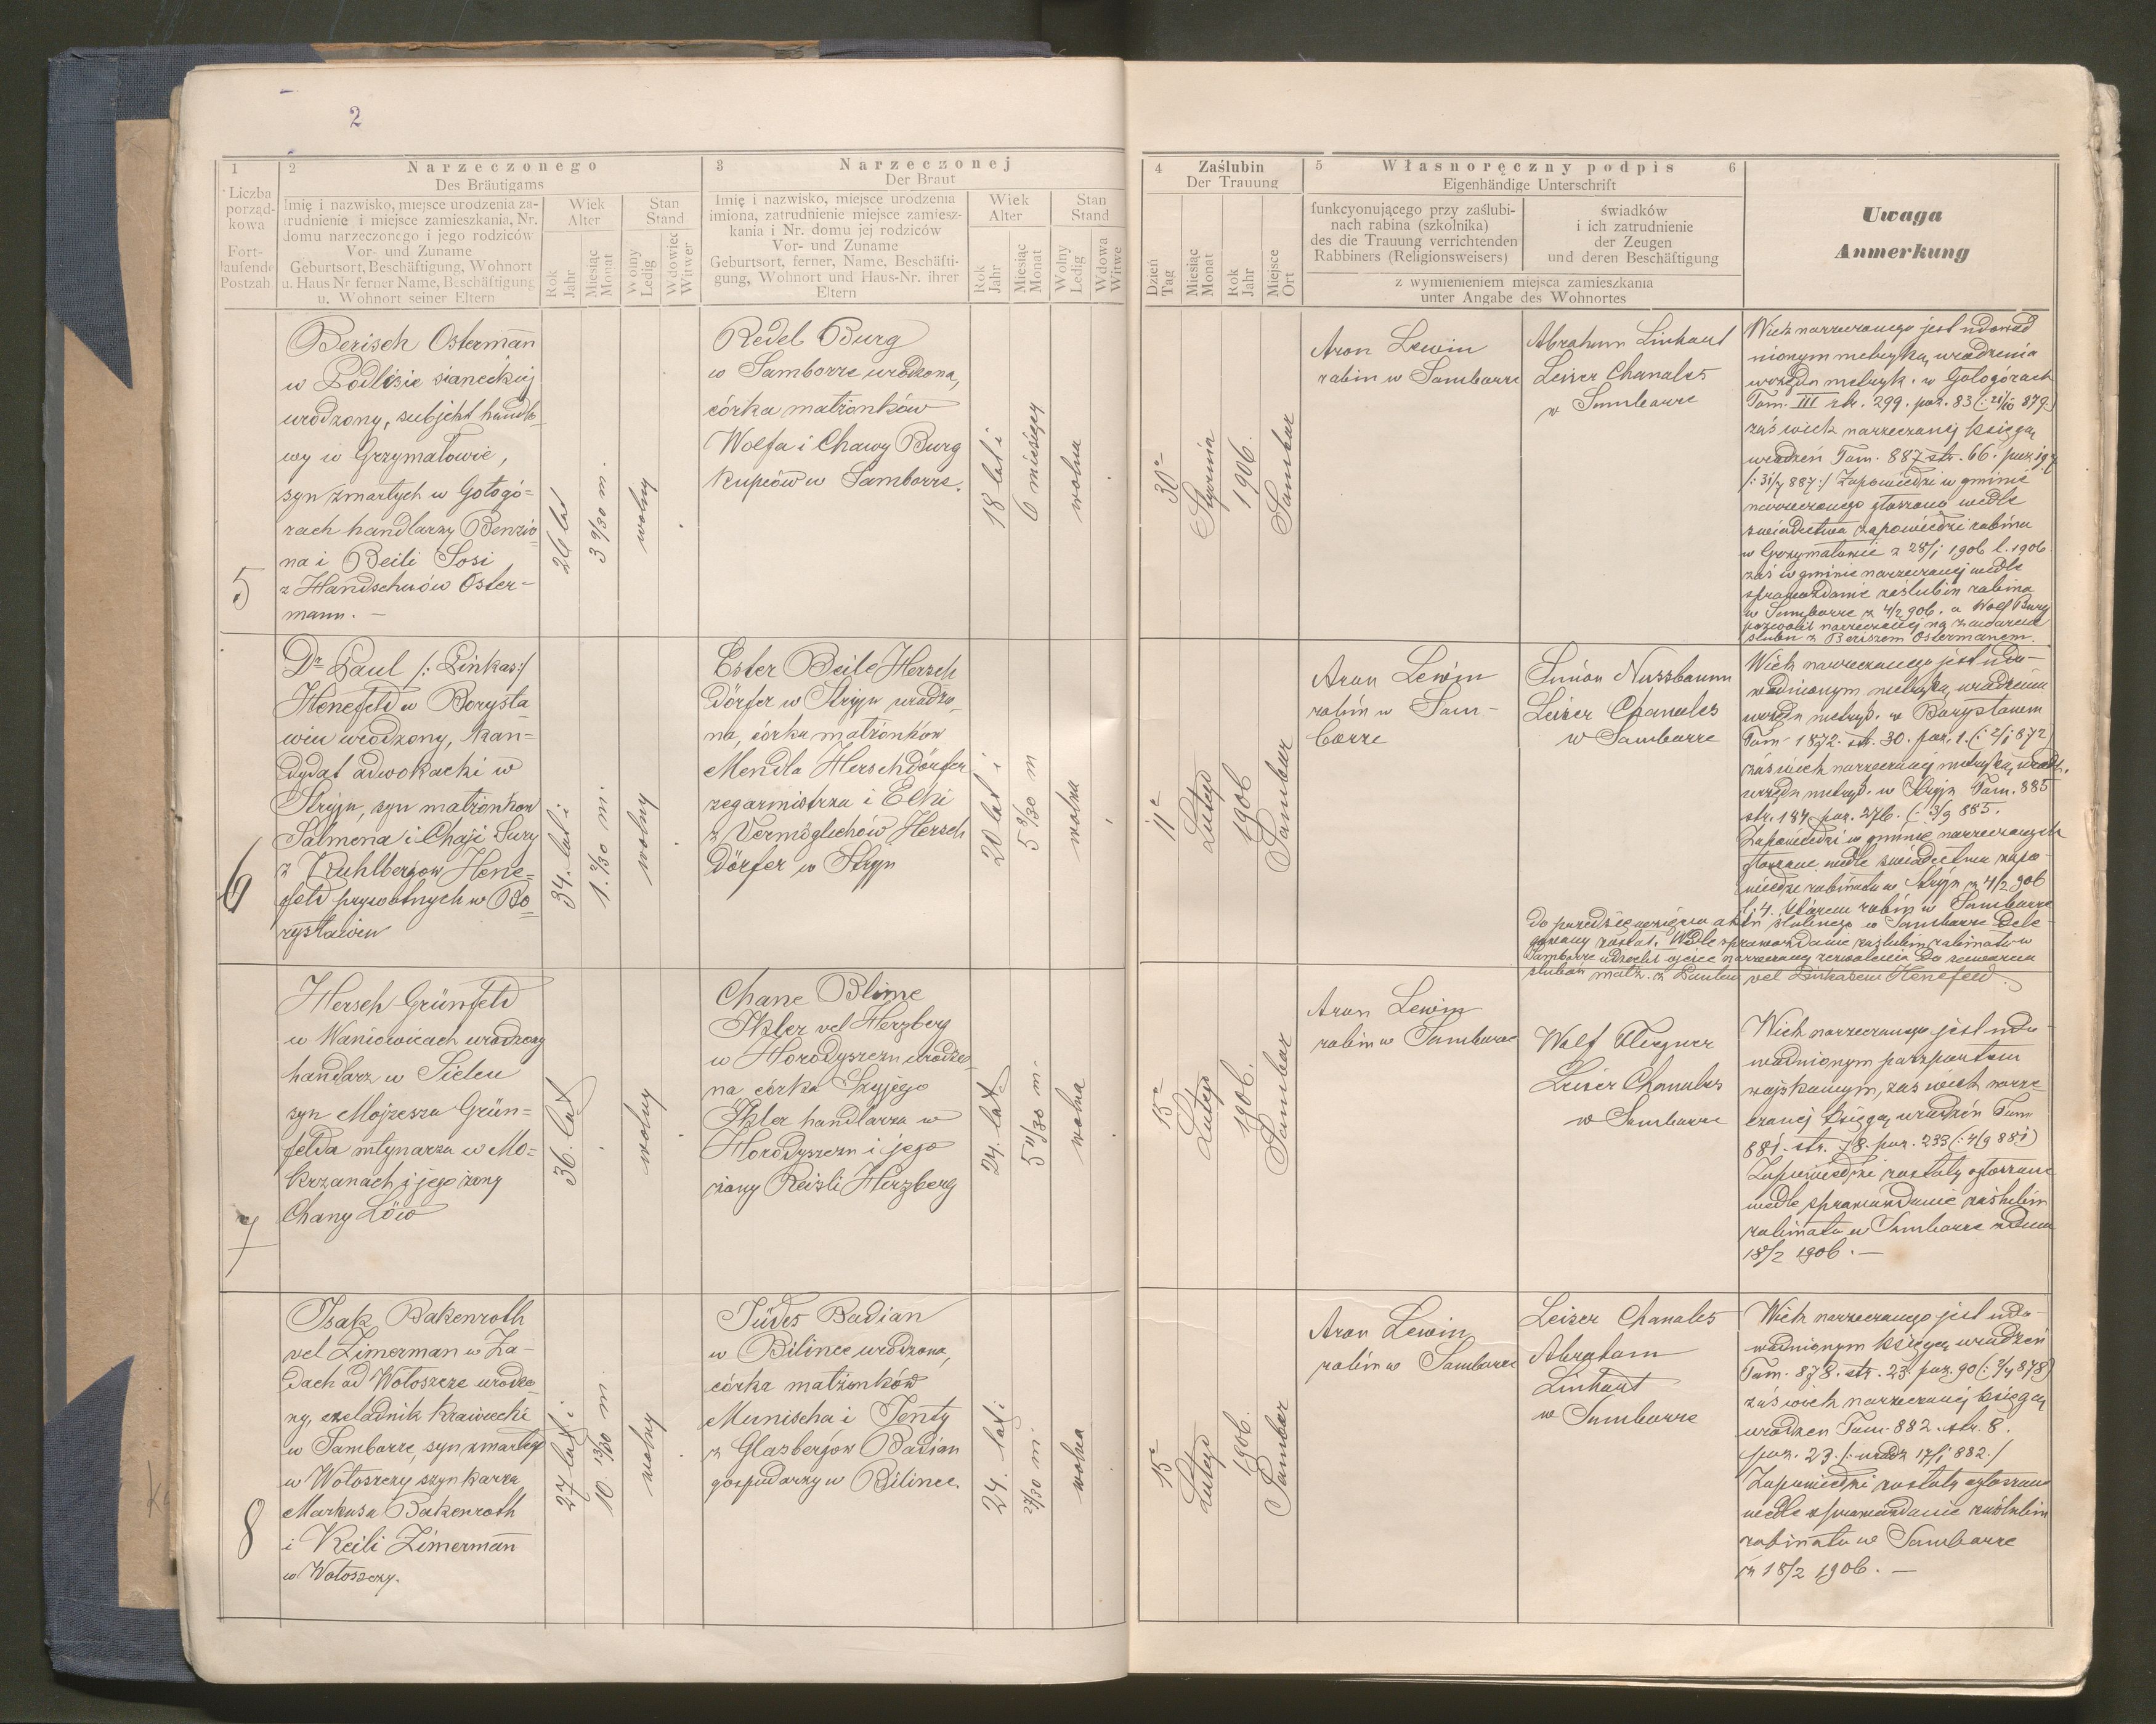 2
1
2
Narzeczonego
Des Bräutigams
3
Narzeczonej
Der Braut
4
Zaślubin
Der Trauung
5
Własnoręczny podpis
6
Eigenhändige Unterschrift
Uwaga
Anmerkung
Liczba
porząd-
kowa
Fort-
laufende
Postzahl
Imię i nazwisko, miejsce urodzenia za-
trudnienie i miejsce zamieszkania, Nr.
domu narzeczonego i jego rodziców
Vor- und Zuname
Geburtsort, Beschäftigung, Wohnort
u. Haus Nr ferner Name, Beschäftigung
u. Wohnort seiner Eltern
Wiek
Alter
Rok
Jahr
Miesiąc
Monat
Stan
Stand
Wolny
Ledig
Wdowiec
Witwer
Imię i nazwisko, miejsce urodzenia
imiona, zatrudnienie miejsce zamiesz-
kania i Nr. domu jej rodziców
Vor- und Zuname
Geburtsort, ferner, Name, Beschäfti-
gung, Wohnort und Haus-Nr. ihrer
Eltern
Wiek
Alter
Rok
Jahr
Miesiąc
Monat
Stan
Stand
Wolny
Ledig
Wdowa
Witwe
Dzień
Tag
Miesiąc
Monat
Rok
Jahr
Miejsce
Ort
funkcyonującego przy zaślubi-
nach rabina (szkolnika)
des die Trauung verrichtenden
Rabbiners (Religionsweisers)
świadków
i ich zatrudnienie
der Zeugen
und deren Beschäftigung
z wymienieniem miejsca zamieszkania
unter Angabe des Wohnortes
5
Berisch Ostermann
w Podlisie
urodzony, subjekt handlo-
wy w Grzymałowie,
syn zmarłych w Gołogó=
rach handlarzy Benzio=
na i Beili Sosi
z Handschuów Oster-
mann. —
26 lat
3 9/30 m.
wolny
Redel Burg
w Samborze urodzona,
córka małżonków
Wolfa i Chawy Burg
kupców w Samborze.
18 lat i
6 miesięcy
wolna
30e
Stycznia
1906.
Sambor
Aron Lewin
rabin w Samborze
Abraham Linhart
Leiser Chanales
w Samborze
Wiek narzeczonego jest udowod
nionym metryką urodzenia
urzędu metryk. w Gołogórach
Tom. III str. 299. poz. 83 (: 21/10 879)
zaś wiek narzeczonej księgą
urodzeń Tom. 887 str. 66. poz 197
/: 31/7 887:/ Zapowiedzi w gminie
narzeczonego głoszono wedle
świadectwa zapowiedzi rabina
w Grzymałowie z 28/1 1906 l. 1906
zaś w gminie narzeczonej wedle
sprawozdanie zaślubin rabina
w Samborze z 4/2 906. a Wolf Burg
pozwolił narzeczonej na zawarcie
ślubu z Beriszem Ostermanem.
6
Dr Paul /: Pinkas:/
Henefeld w Borysła=
wiu urodzony, kan=
dydat adwokacki w
Stryju, syn małżonków
Salmona i Chaji Sury
z Kuhlbergów Hene=
feld prywatnych w Bo=
rysławiu
34. lat i
1. 9/30 m.
wolny
Ester Beile Hersch
dörfer w Stryju urodzo=
na, córka małżonków
Mendla Herschdörfer
zegarmistrza i Elki
z Vermöglichów Hersch
dörfer w Stryju
20 lat i
5 9/30 m
wolna
11e
Lutego
1906
Sambor
Aron Lewin
rabin w Sam-
borze
Simon Nussbaum
Leiser Chanales
w Samborze
Wiek narzeczonego jest udo-
wodnionym metryką urodzenia
urzędu metryk. w Borysławiu
Tom 1872. str. 30. poz. 1. (: 2/1 872)
zaś wiek narzeczonej metryką urodz.
urzędu metryk. w Stryju Tom. 885
str. 184 poz. 276. (: 3/9 885.
Zapowiedzi w gminie narzeczonych
głoszone wedle świadectwa zapo-
wiedzi rabinatu w Stryju z 4/2 906
l. 4. Którem rabin w Samborze
do przedsięwzięcia aktu ślubnego w Samborze dele-
gowany został. Wedle sprawozdanie zaślubin rabinatu w
Samborze udzielił ojciec narzeczonej zezwolenia do zawarcia
ślubów małż. z Paulem vel Pinkasem Henefeld.
7
Hersch Grünfeld
w Waniowicach urodzony
handlarz w Sielcu
syn Mojżesza Grün=
felda młynarza w Mo=
krzanach i jego żony
Chany Löw
36. lat
wolny
Chane Blime
Ihler vel Herzberg
w Horodyszczu urodzo=
na córka Szyjego
Ihler handlarza w
Horodyszczu i jego
żony Reisli Herzberg
24. lat
5 11/30 m.
wolna
15e
Lutego
1906.
Sambor
Aron Lewin
rabin w Samborze
Wolf
Leiser Chanales
w Samborze
Wiek narzeczonego jest udo
wodnionym paszportem
wojskowym, zaś wiek narze-
czonej księgą urodzeń Tom
881. str. 78. poz. 233 (: 4/9 881)
Zapowiedzi zostały ogłoszone
wedle sprawozdanie zaślubin
rabinatu w Samborze z dnia
18/2 1906. —
8
Isak Bakenroth
vel Zimerman w Za-
dach ad Wołoszcze urodzo=
ny, czeladnik krawiecki
w Samborze, syn zmarłego
w Wołoszczy szynkarza
Markusa Bakenroth
i Keili Zimermann
w Wołoszczy.
27 lat i
10. 13/30 m.
wolny
Jüdes Badian
w Bilince urodzona,
córka małżonków
Munischa i Jenty
z Glasbergów Badian
gospodarzy w Bilince.
24. lat i
27/30 m.
wolna
15e
Lutego
1906.
Sambor
Aron Lewin
rabin w Samborze
Leiser Chanales
Abraham
Linhart
w Samborze
Wiek narzeczonego jest udo-
wodnionym księgą urodzeń
Tom. 878. str. 23. poz. 90 (: 2/4 878)
zaś wiek narzeczonej księgą
urodzen Tom. 882. str. 8.
poz. 23. /: urodz 17/1 882./
Zapowiedzi zostały ogłoszone
wedle sprawozdanie zaślubin
rabinatu w Samborze
z 18/2 1906. —